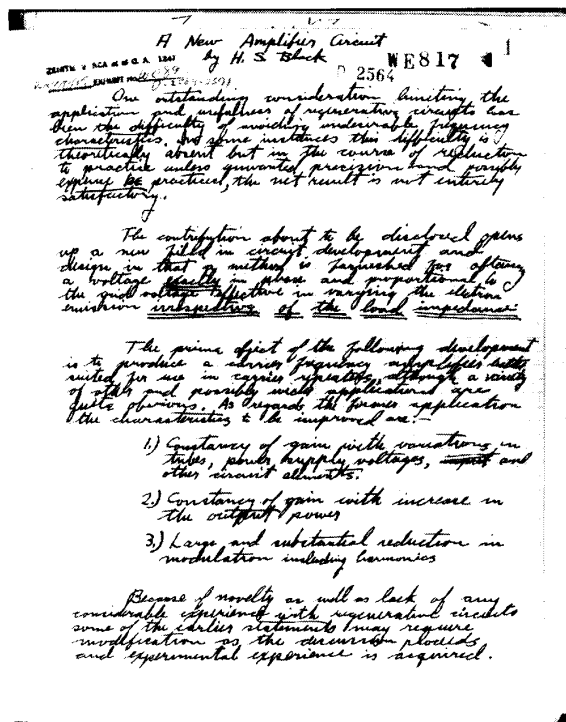 A New Amplifier Circuit
by H. S. Black
WE817 1
2564
ZENITH v RCA et al C.A. 1241
EXHIBIT No.
One outstanding consideration limiting the
application and usefulness of regenerative circuits has
been the difficulty of avoiding undesirable frequency
characteristics. In some instances this difficulty is
theoretically absent but in the course of reduction
to practice unless unwanted precision and possibly
expense be practiced, the net result is not entirely
satisfactory.
The contribution about to be disclosed opens
up a new field in circuit development and
design in that a method is furnished for obtaining
a voltage exactly in phase and proportional to
the grid voltage effective in varying the electron
emission irrespective of the load impedance.
The prime object of the following development
is to produce a carrier frequency amplifier better
suited for use in carrier repeaters, although a variety
of other and possibly wider applications are
quite obvious. As regards the former application
the characteristics to be improved are:-
1.) Constancy of gain with variations in
tubes, power supply voltages, and
other circuit elements.
2.) Constancy of gain with increase in
the output power
3.) Large and substantial reduction in
modulation including harmonics
Because of novelty as well as lack of any
considerable experience with regenerative circuits
some of the earlier statements may require
modification as the discussion proceeds
and experimental experience is acquired.